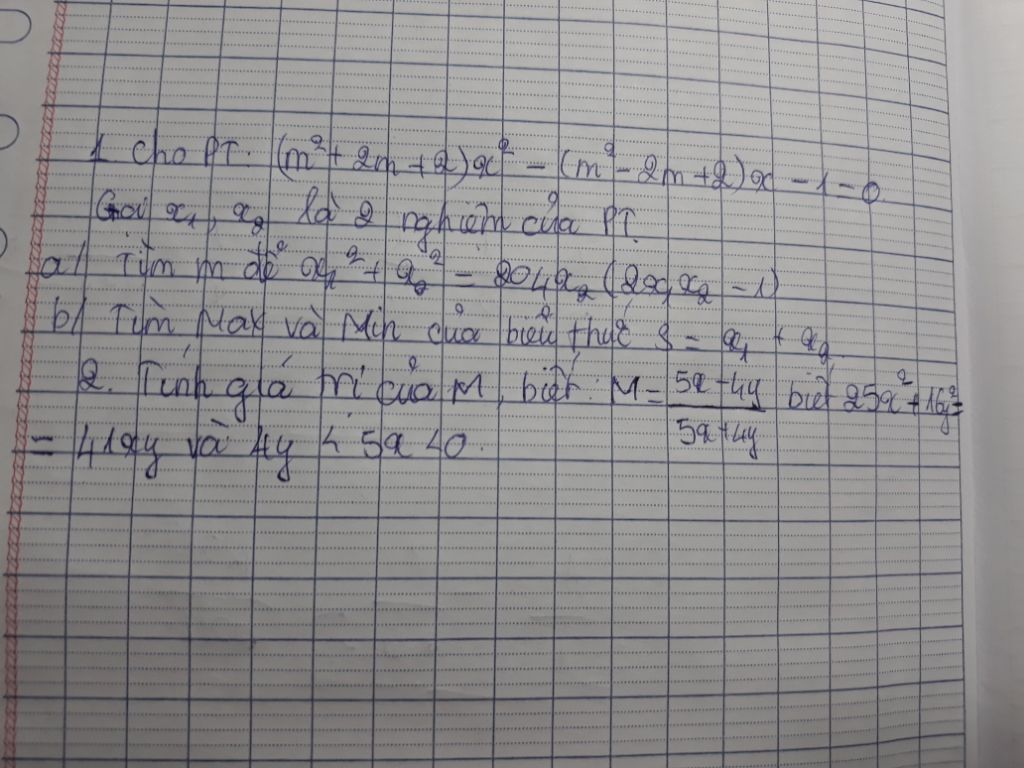 1. cho PT: (m² + 2m + 2)x² - (m² - 2m + 2)x - 1 = 0
Gọi x₁, x₂ là 2 nghiệm của PT.
a/ Tìm m để x₁² + x₂² = 2x₁x₂(2x₁x₂ - 1)
b/ Tìm Max và Min của biểu thức S = x₁ + x₂
2. Tính giá trị của M, biết: M = (5x - 4y)/(5x + 4y) biết 25x² + 16y² =
= 41xy và 4y < 5x < 0.